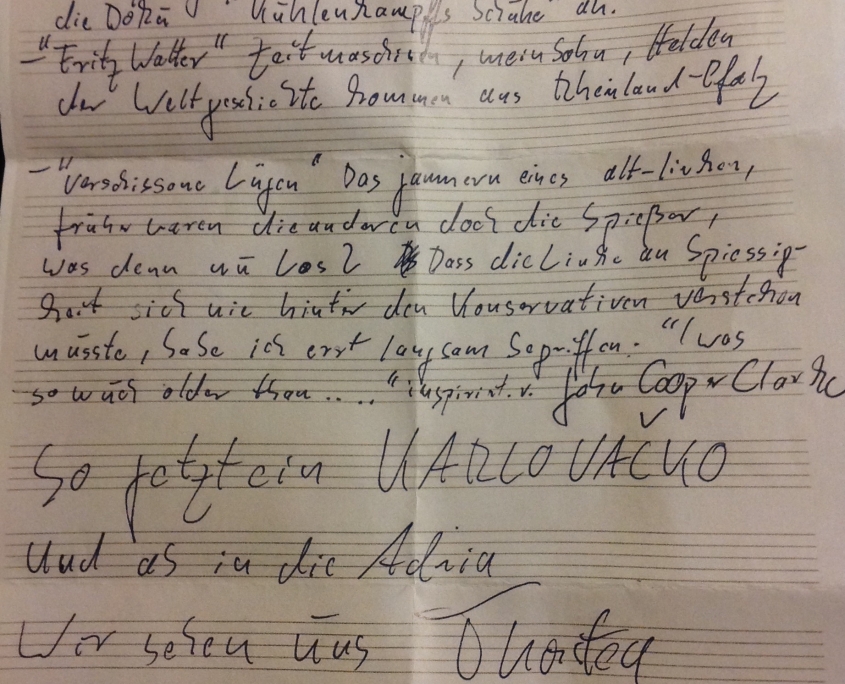 die Döka" Kuhlenkampffs Schuhe" an.
– "Fritz Walter" Zeitmaschien, mein Sohn, Helden
der Weltgeschichte kommen aus Rheinland-Pfalz
– "Verschissene Lügen" Das jammern eines alt-linken,
früher waren die anderen doch die Spießer,
was denn nū los? Dass die Linke an Spiessig-
keit sich nie hinter den Konservativen verstehen
müsste, habe ich erst langsam begriffen. "I was
so much older than ....." inspiriert v. John Cooper Clarke
So jetzt ein KARLOVAČKO
Und ab in die Adria
Wir sehen uns Thorsten